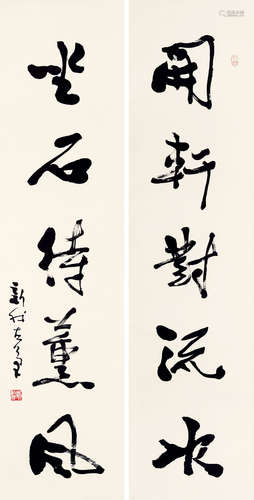 開軒對流水
坐石待薰風